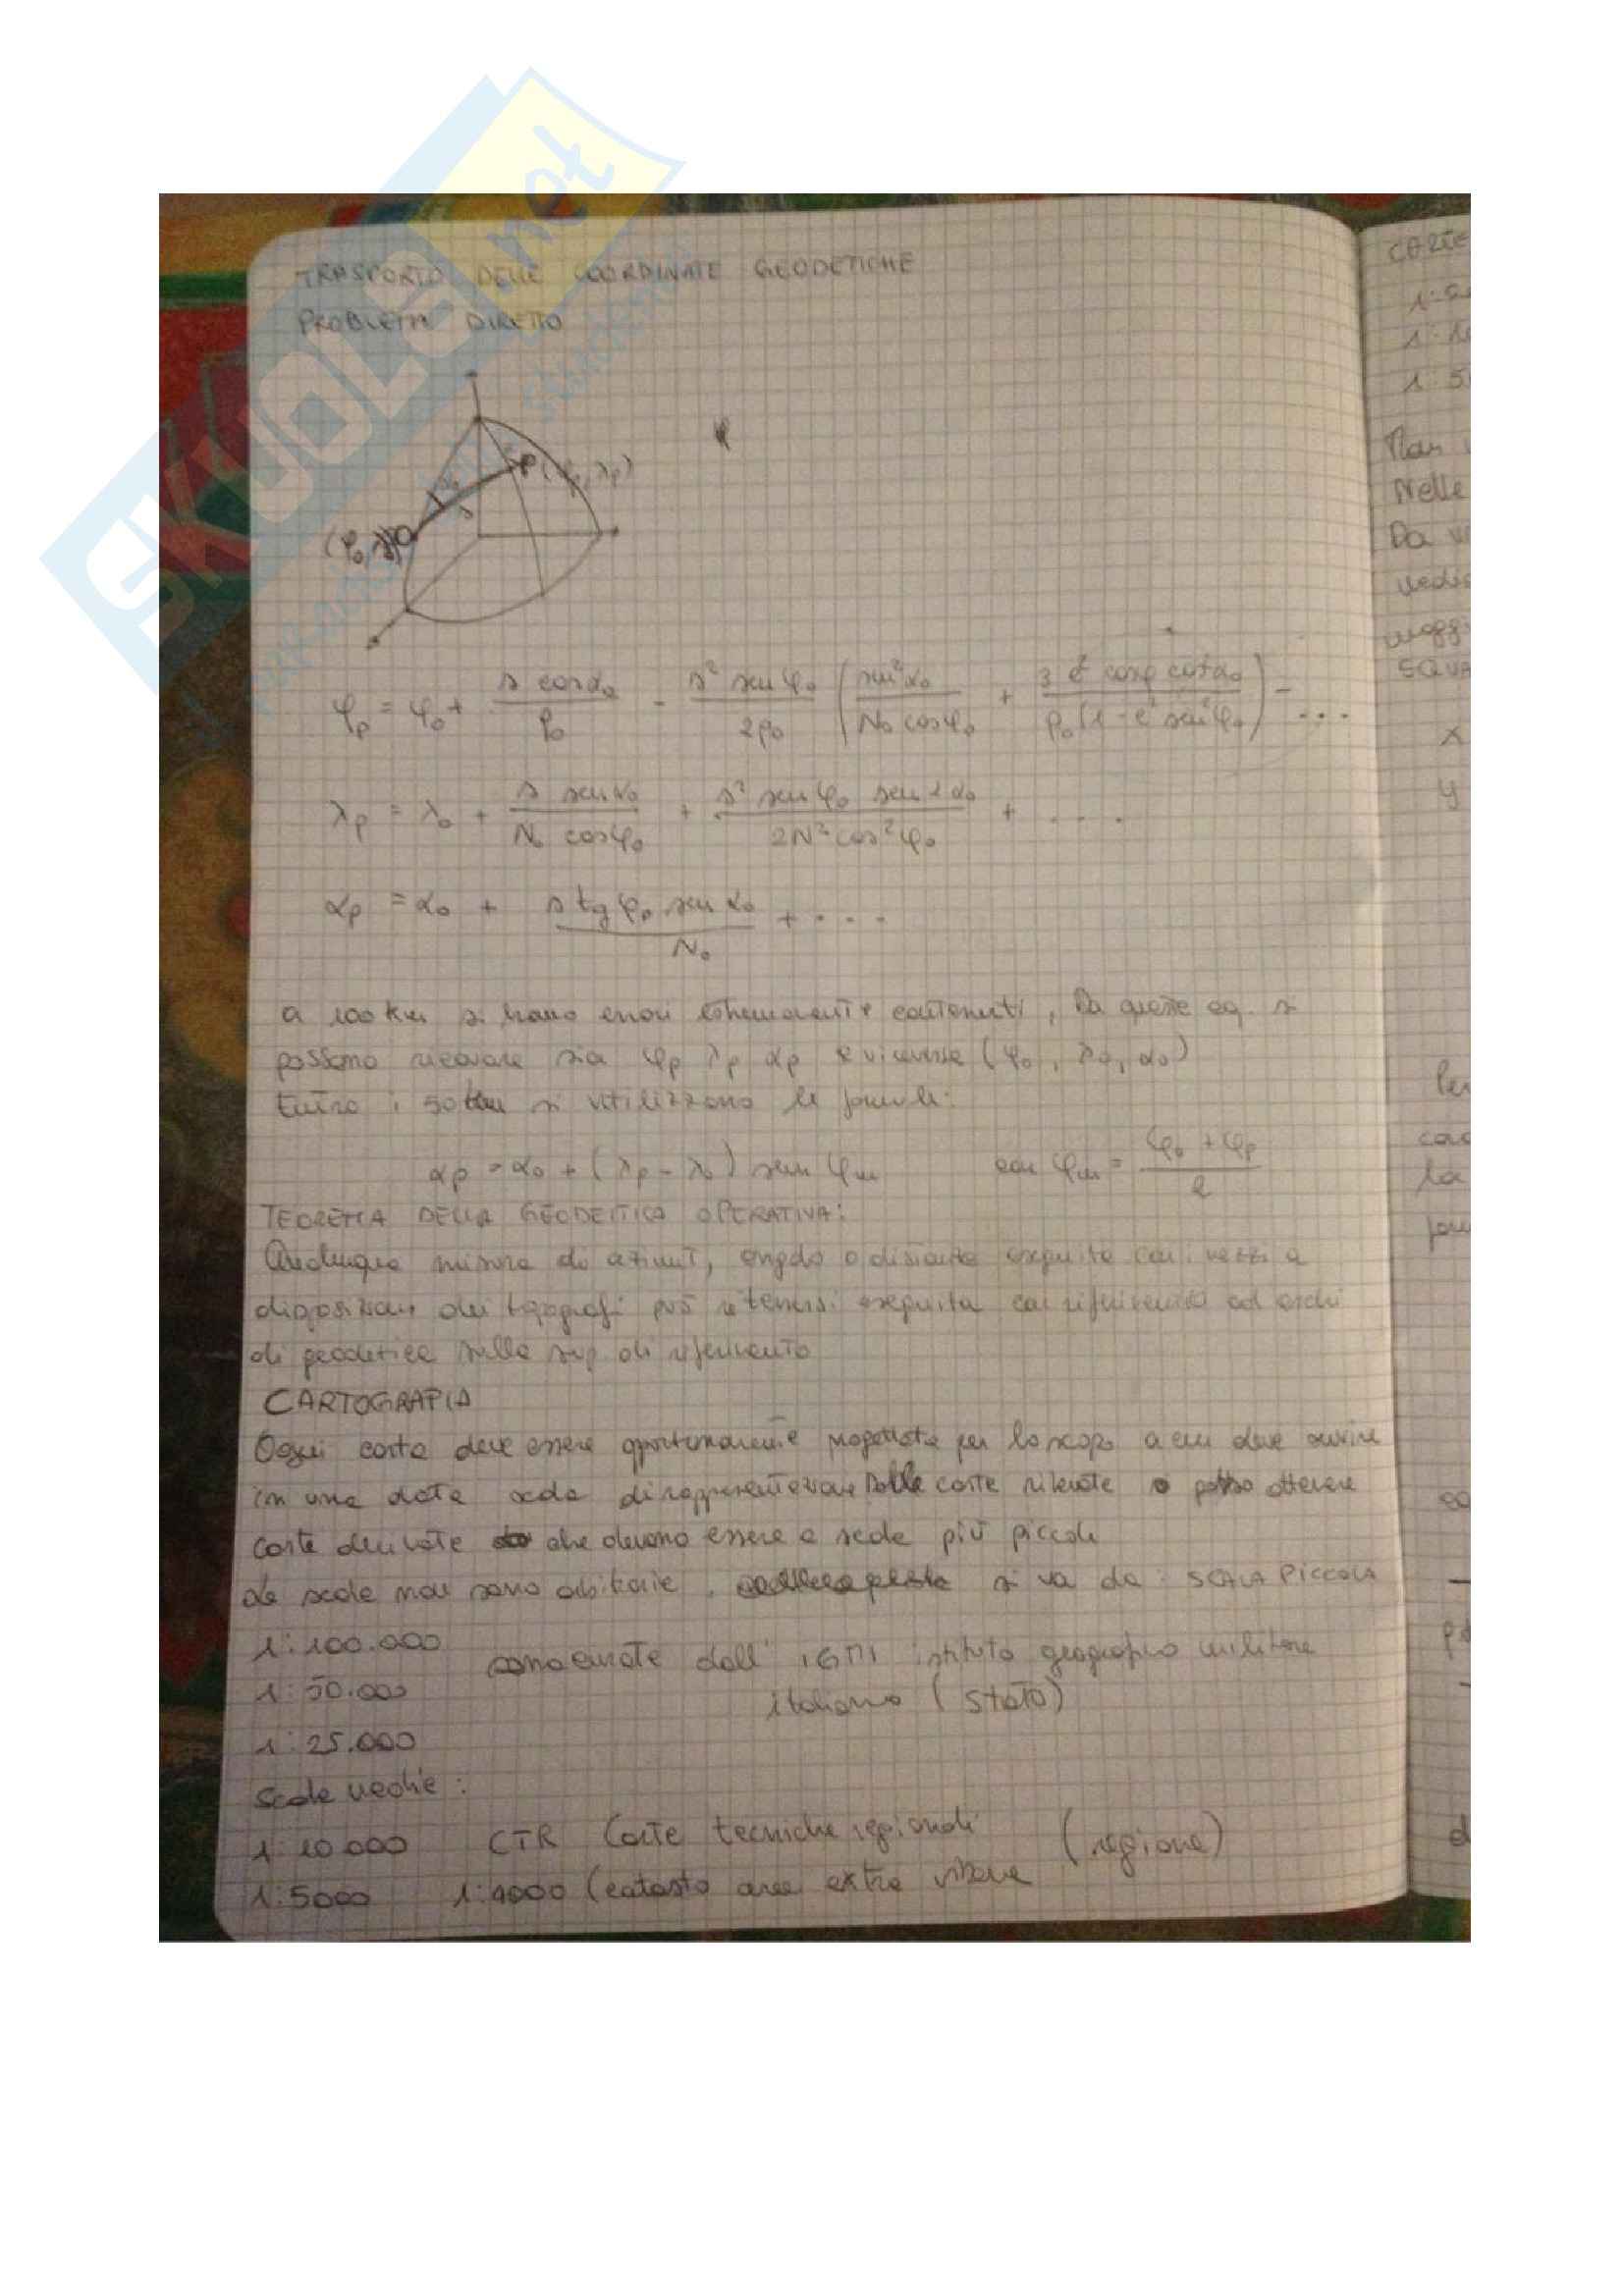 SKUOLA.net
TRASPORTO DELLE COORDINATE GEODETICHE
PROBLEMA DIRETTO
φ
P (φp, λp)
α₀
s
(φ₀, λ₀) O
φp = φ₀ + s cosα₀ / ρ₀ - s² senφ₀ / 2ρ₀ ( sen²α₀ / N₀ cosφ₀ + 3 e² cosφ cos²α₀ / ρ₀ (1 - e² sen²φ₀) ) - ...
λp = λ₀ + s senα₀ / N₀ cosφ₀ + s² senφ₀ sen 2α₀ / 2N² cos²φ₀ + ....
αp = α₀ + s tg φ₀ sen α₀ / N₀ + ....
a 100 km si hanno errori estremamente contenuti, Da queste eq. si
possono ricavare sia φp λp αp e viceversa (φ₀, λ₀, α₀)
Entro i 50 km si utilizzano le formule:
αp = α₀ + (λp - λ₀) sen φm con φm = φ₀ + φp / 2
TEOREMA DELLA GEODETICA OPERATIVA:
Qualunque misura di azimut, angolo o distanza eseguita con i mezzi a
disposizione dei topografi può ritenersi eseguita con riferimento ad archi
di geodetica sulla sup. di riferimento
CARTOGRAFIA
Ogni carta deve essere opportunamente progettata per lo scopo a cui deve servire
in una data scala di rappresentazione Dalle carte rilevate posso ottenere
carte derivate che devono essere a scale più piccole
Le scale non sono arbitrarie. si va da: SCALA PICCOLA
1:100.000
sono curate dall' IGMI istituto geografico militare
1:50.000
italiano (Stato)
1:25.000
Scale medie:
1:10.000 CTR Carte tecniche regionali (regione)
1:5000 1:4000 (catasto aree extra urbane
CARTE
Nelle
Da
x
y
la